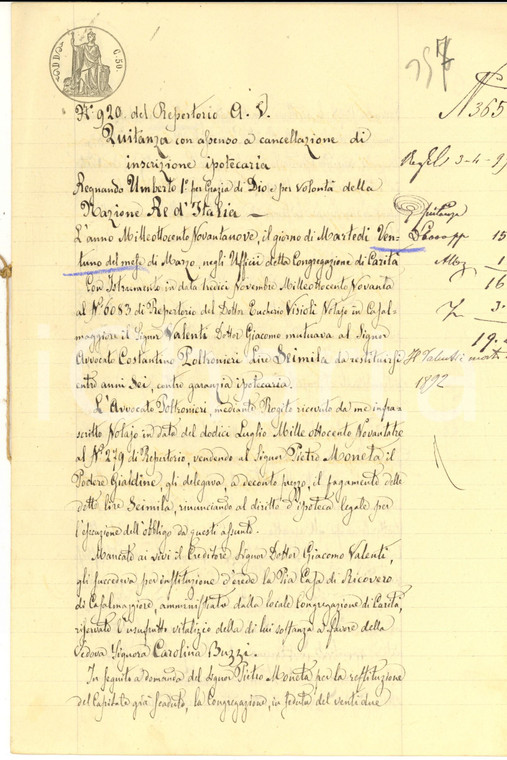 C. 50.
N.° 920. del Repertorio A. V.
Quitanza con assenso a cancellazione di
inscrizione ipotecaria
Regnando Umberto I° per Grazia di Dio e per Volontà della
Nazione Re d'Italia —
L'anno Milleottocento Novantanove, il giorno di Martedì Ven-
tuno del mese di Marzo, negli Ufficii della Congregazione di Carità
Con Istrumento in data tredici Novembre Milleottocento Novanta
al N.° 6083 di Repertorio del Dottor Eucherio Visioli Notajo in Casal-
maggiore il Signor Valenti Dottor Giacomo mutuava al Signor
Avvocato Costantino Poltronieri Lire Seimila da restituirsi
entro anni Sei, contro garanzia ipotecaria.
L'Avvocato Poltronieri, mediante Rogito ricevuto da me infra-
scritto Notajo in data del dodici Luglio Mille ottocento Novantatre
al N.° 279 di Repertorio, vendendo al Signor Pietro Moneta il
Podere Giardine, gli delegava, a deconto prezzo, il pagamento delle
dette lire Seimila, rinunciando al diritto d'ipoteca legale per
l'esecuzione dell'obbligo da questi assunto.
Mancato ai vivi il Creditore Signor Dottor Giacomo Valenti,
gli succedeva per instituzione d'erede la Pia Casa di Ricovero
di Casalmaggiore, amministrata dalla locale Congregazione di Carità,
riservato l'usufrutto vitalizio della di lui sostanza a favore della
Vedova Signora Carolina Buzzi.
In seguito a domanda del Signor Pietro Moneta per la restituzione
del Capitale già scaduto, la Congregazione, in seduta del ventidue
N 365
3-4-9
15
1
16
3
19
1892